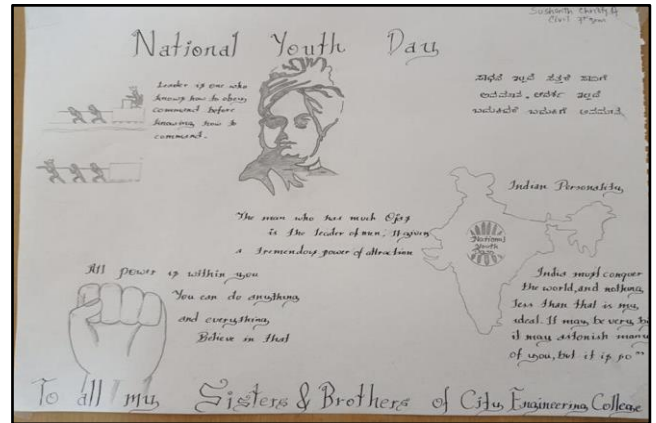 Sushmith Christy G
Civil 7th Sem
National Youth Day
Leader is one who
knows how to obey
command before
knowing how to
command.
ಸಾಧನೆ ಇಲ್ಲದೆ ಸತ್ತರೆ ಸಾವಿಗೆ
ಅವಮಾನ. ಆದರ್ಶ ಇಲ್ಲದೆ
ಬದುಕಿದರೆ ಬದುಕಿಗೆ ಅವಮಾನ
Indian Personality
The man who has much Ojas
is the leader of men. It gives
a tremendous power of attraction
National
Youth
Day
All power is within you
You can do anything
and everything
Believe in that
India must conquer
the world, and nothing
less than that is my
ideal. It may be very
it may astonish many
of you, but it is so"
To all my Sisters & Brothers of City Engineering College